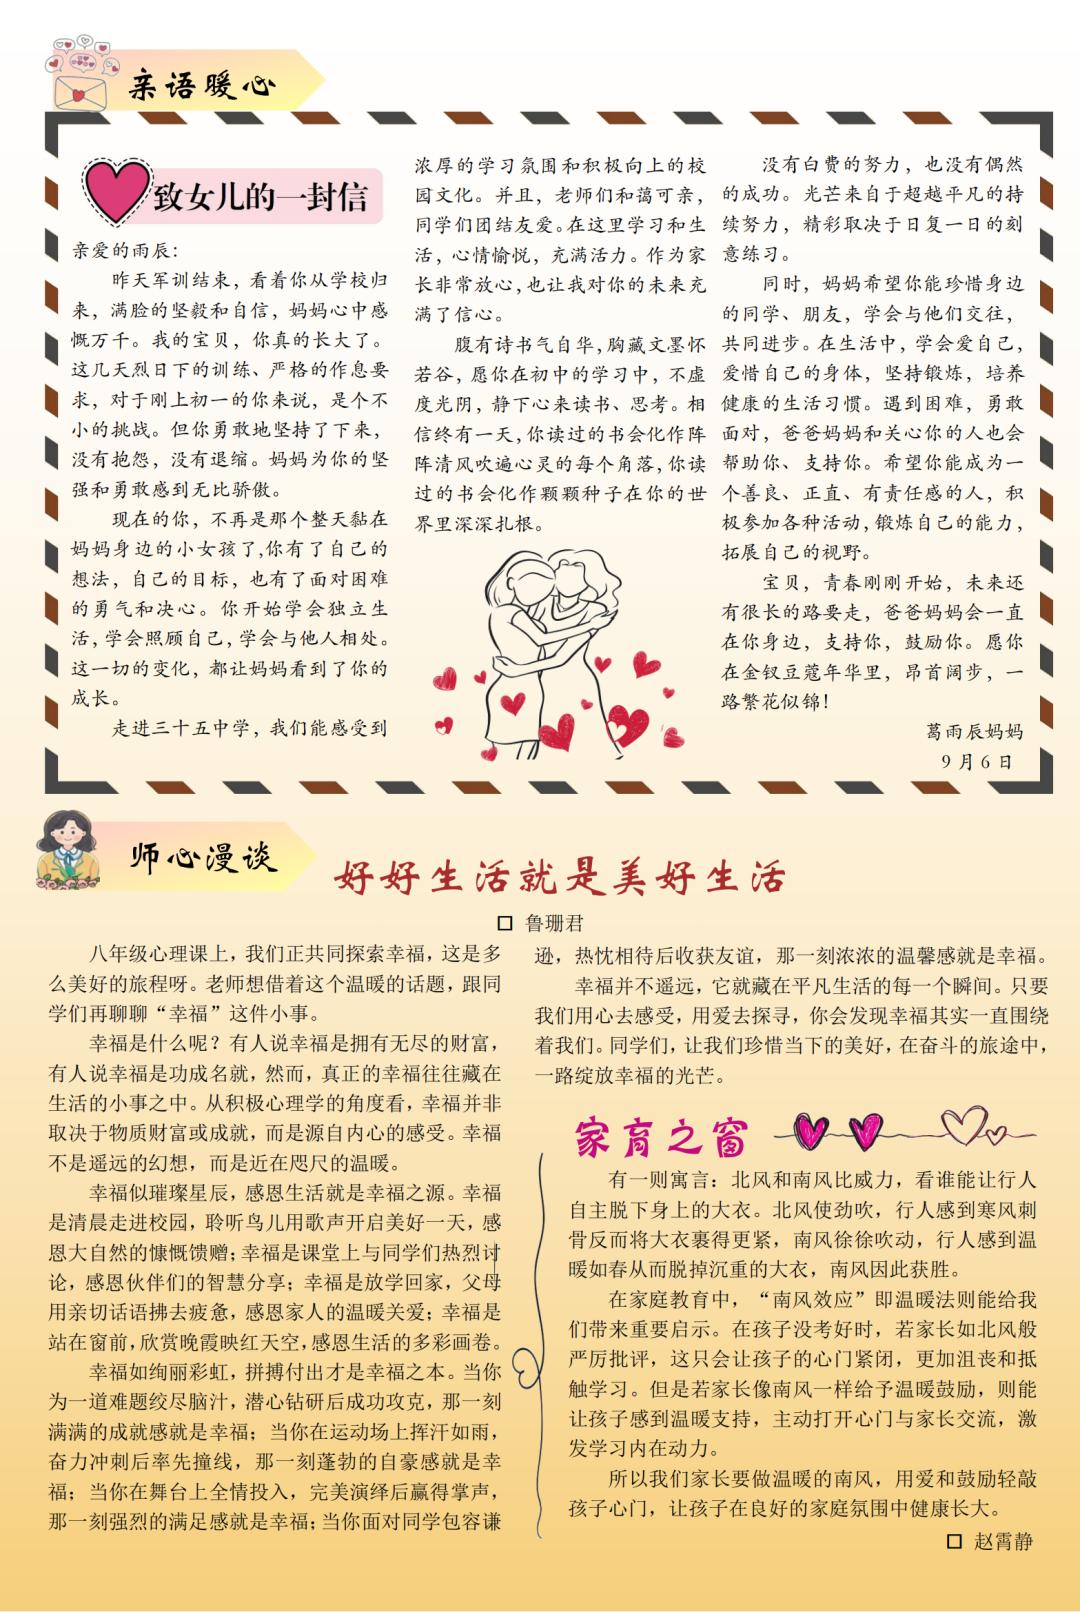 亲语暖心
致女儿的一封信
亲爱的雨辰：
昨天军训结束，看着你从学校归
来，满脸的坚毅和自信，妈妈心中感
慨万千。我的宝贝，你真的长大了。
这几天烈日下的训练、严格的作息要
求，对于刚上初一的你来说，是个不
小的挑战。但你勇敢地坚持了下来，
没有抱怨，没有退缩。妈妈为你的坚
强和勇敢感到无比骄傲。
现在的你，不再是那个整天黏在
妈妈身边的小女孩了，你有了自己的
想法，自己的目标，也有了面对困难
的勇气和决心。你开始学会独立生
活，学会照顾自己，学会与他人相处。
这一切的变化，都让妈妈看到了你的
成长。
走进三十五中学，我们能感受到
浓厚的学习氛围和积极向上的校
园文化。并且，老师们和蔼可亲，
同学们团结友爱。在这里学习和生
活，心情愉悦，充满活力。作为家
长非常放心，也让我对你的未来充
满了信心。
腹有诗书气自华，胸藏文墨怀
若谷，愿你在初中的学习中，不虚
度光阴，静下心来读书、思考。相
信终有一天，你读过的书会化作阵
阵清风吹遍心灵的每个角落，你读
过的书会化作颗颗种子在你的世
界里深深扎根。
没有白费的努力，也没有偶然
的成功。光芒来自于超越平凡的持
续努力，精彩取决于日复一日的刻
意练习。
同时，妈妈希望你能珍惜身边
的同学、朋友，学会与他们交往，
共同进步。在生活中，学会爱自己，
爱惜自己的身体，坚持锻炼，培养
健康的生活习惯。遇到困难，勇敢
面对，爸爸妈妈和关心你的人也会
帮助你、支持你。希望你能成为一
个善良、正直、有责任感的人，积
极参加各种活动，锻炼自己的能力，
拓展自己的视野。
宝贝，青春刚刚开始，未来还
有很长的路要走，爸爸妈妈会一直
在你身边，支持你，鼓励你。愿你
在金钗豆蔻年华里，昂首阔步，一
路繁花似锦！
葛雨辰妈妈
9月6日
师心漫谈
好好生活就是美好生活
□ 鲁珊君
八年级心理课上，我们正共同探索幸福，这是多
么美好的旅程呀。老师想借着这个温暖的话题，跟同
学们再聊聊“幸福”这件小事。
幸福是什么呢？有人说幸福是拥有无尽的财富，
有人说幸福是功成名就，然而，真正的幸福往往藏在
生活的小事之中。从积极心理学的角度看，幸福并非
取决于物质财富或成就，而是源自内心的感受。幸福
不是遥远的幻想，而是近在咫尺的温暖。
幸福似璀璨星辰，感恩生活就是幸福之源。幸福
是清晨走进校园，聆听鸟儿用歌声开启美好一天，感
恩大自然的慷慨馈赠；幸福是课堂上与同学们热烈讨
论，感恩伙伴们的智慧分享；幸福是放学回家，父母
用亲切话语拂去疲惫，感恩家人的温暖关爱；幸福是
站在窗前，欣赏晚霞映红天空，感恩生活的多彩画卷。
幸福如绚丽彩虹，拼搏付出才是幸福之本。当你
为一道难题绞尽脑汁，潜心钻研后成功攻克，那一刻
满满的成就感就是幸福；当你在运动场上挥汗如雨，
奋力冲刺后率先撞线，那一刻蓬勃的自豪感就是幸
福；当你在舞台上全情投入，完美演绎后赢得掌声，
那一刻强烈的满足感就是幸福；当你面对同学包容谦
逊，热忱相待后收获友谊，那一刻浓浓的温馨感就是幸福。
幸福并不遥远，它就藏在平凡生活的每一个瞬间。只要
我们用心去感受，用爱去探寻，你会发现幸福其实一直围绕
着我们。同学们，让我们珍惜当下的美好，在奋斗的旅途中，
一路绽放幸福的光芒。
家育之窗
有一则寓言：北风和南风比威力，看谁能让行人
自主脱下身上的大衣。北风使劲吹，行人感到寒风刺
骨反而将大衣裹得更紧，南风徐徐吹动，行人感到温
暖如春从而脱掉沉重的大衣，南风因此获胜。
在家庭教育中，“南风效应”即温暖法则能给我
们带来重要启示。在孩子没考好时，若家长如北风般
严厉批评，这只会让孩子的心门紧闭，更加沮丧和抵
触学习。但是若家长像南风一样给予温暖鼓励，则能
让孩子感到温暖支持，主动打开心门与家长交流，激
发学习内在动力。
所以我们家长要做温暖的南风，用爱和鼓励轻敲
孩子心门，让孩子在良好的家庭氛围中健康长大。
□ 赵霄静